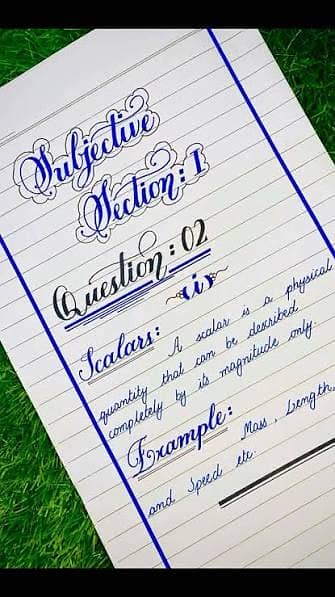 Subjective
Section: I
Question: 02
(i)
Scalars:
A scalar is a physical
quantity that can be described
completely by its magnitude only.
Example:
Mass, Length,
and Speed etc.